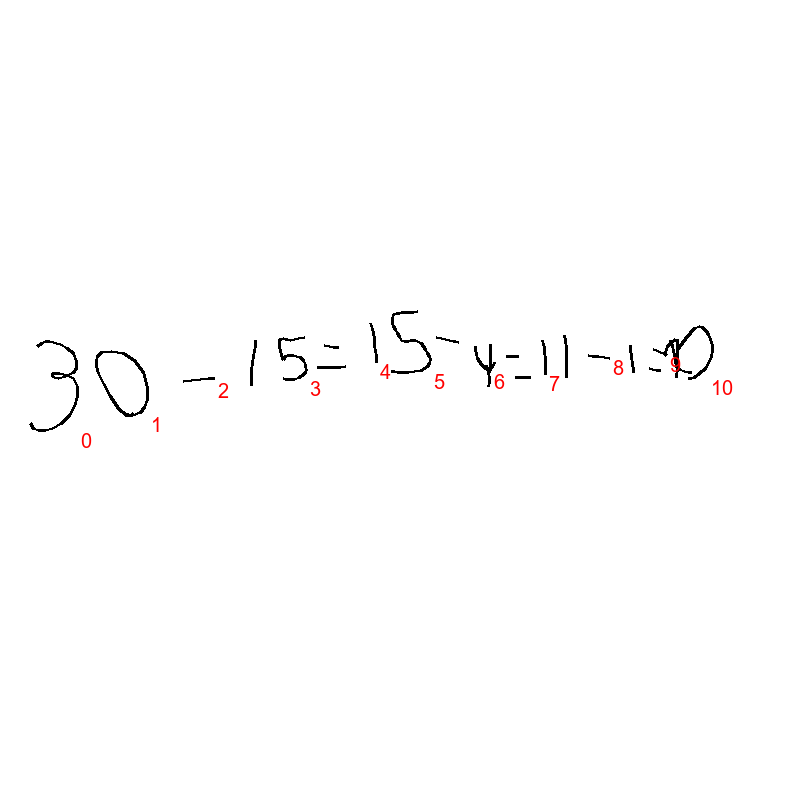 30 - 15 = 15 - 4 = 11 - 1 = 10
0 1 2 3 4 5 6 7 8 9 10